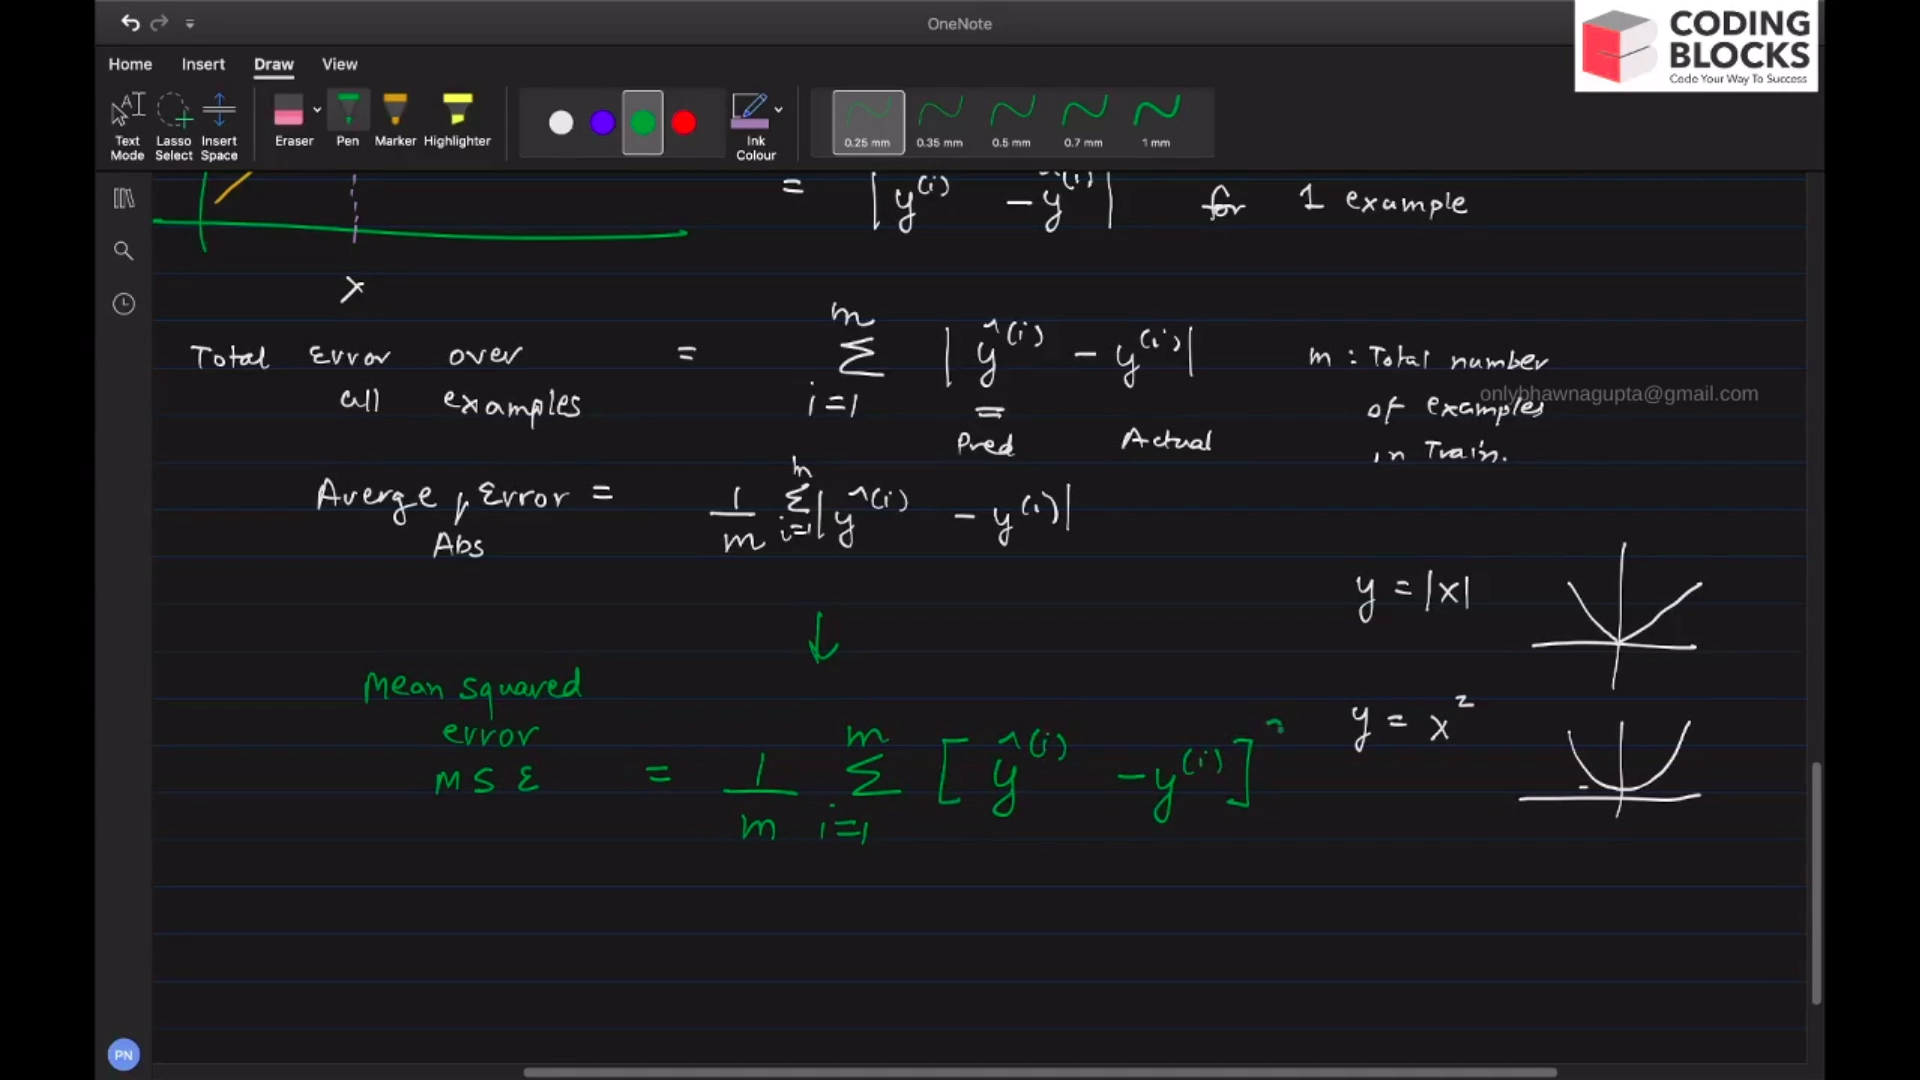 OneNote
CODING
BLOCKS
Code Your Way To Success
Home Insert Draw View
Text Mode
Lasso Select
Insert Space
Eraser
Pen
Marker
Highlighter
Ink Colour
0.25 mm
0.35 mm
0.5 mm
0.7 mm
1 mm
= |y^(i) - ŷ^(i)| for 1 example
x
Total Error over all examples = m Σ i=1 |ŷ^(i) - y^(i)|
Pred Actual
m : Total number
of examples
in Train.
onlybhawnagupta@gmail.com
Averge , Error = 1/m m Σ i=1 |ŷ^(i) - y^(i)|
Abs
y = |x|
↓
Mean squared
error
MSE = 1/m m Σ i=1 [ŷ^(i) - y^(i)]
y = x^2
PN